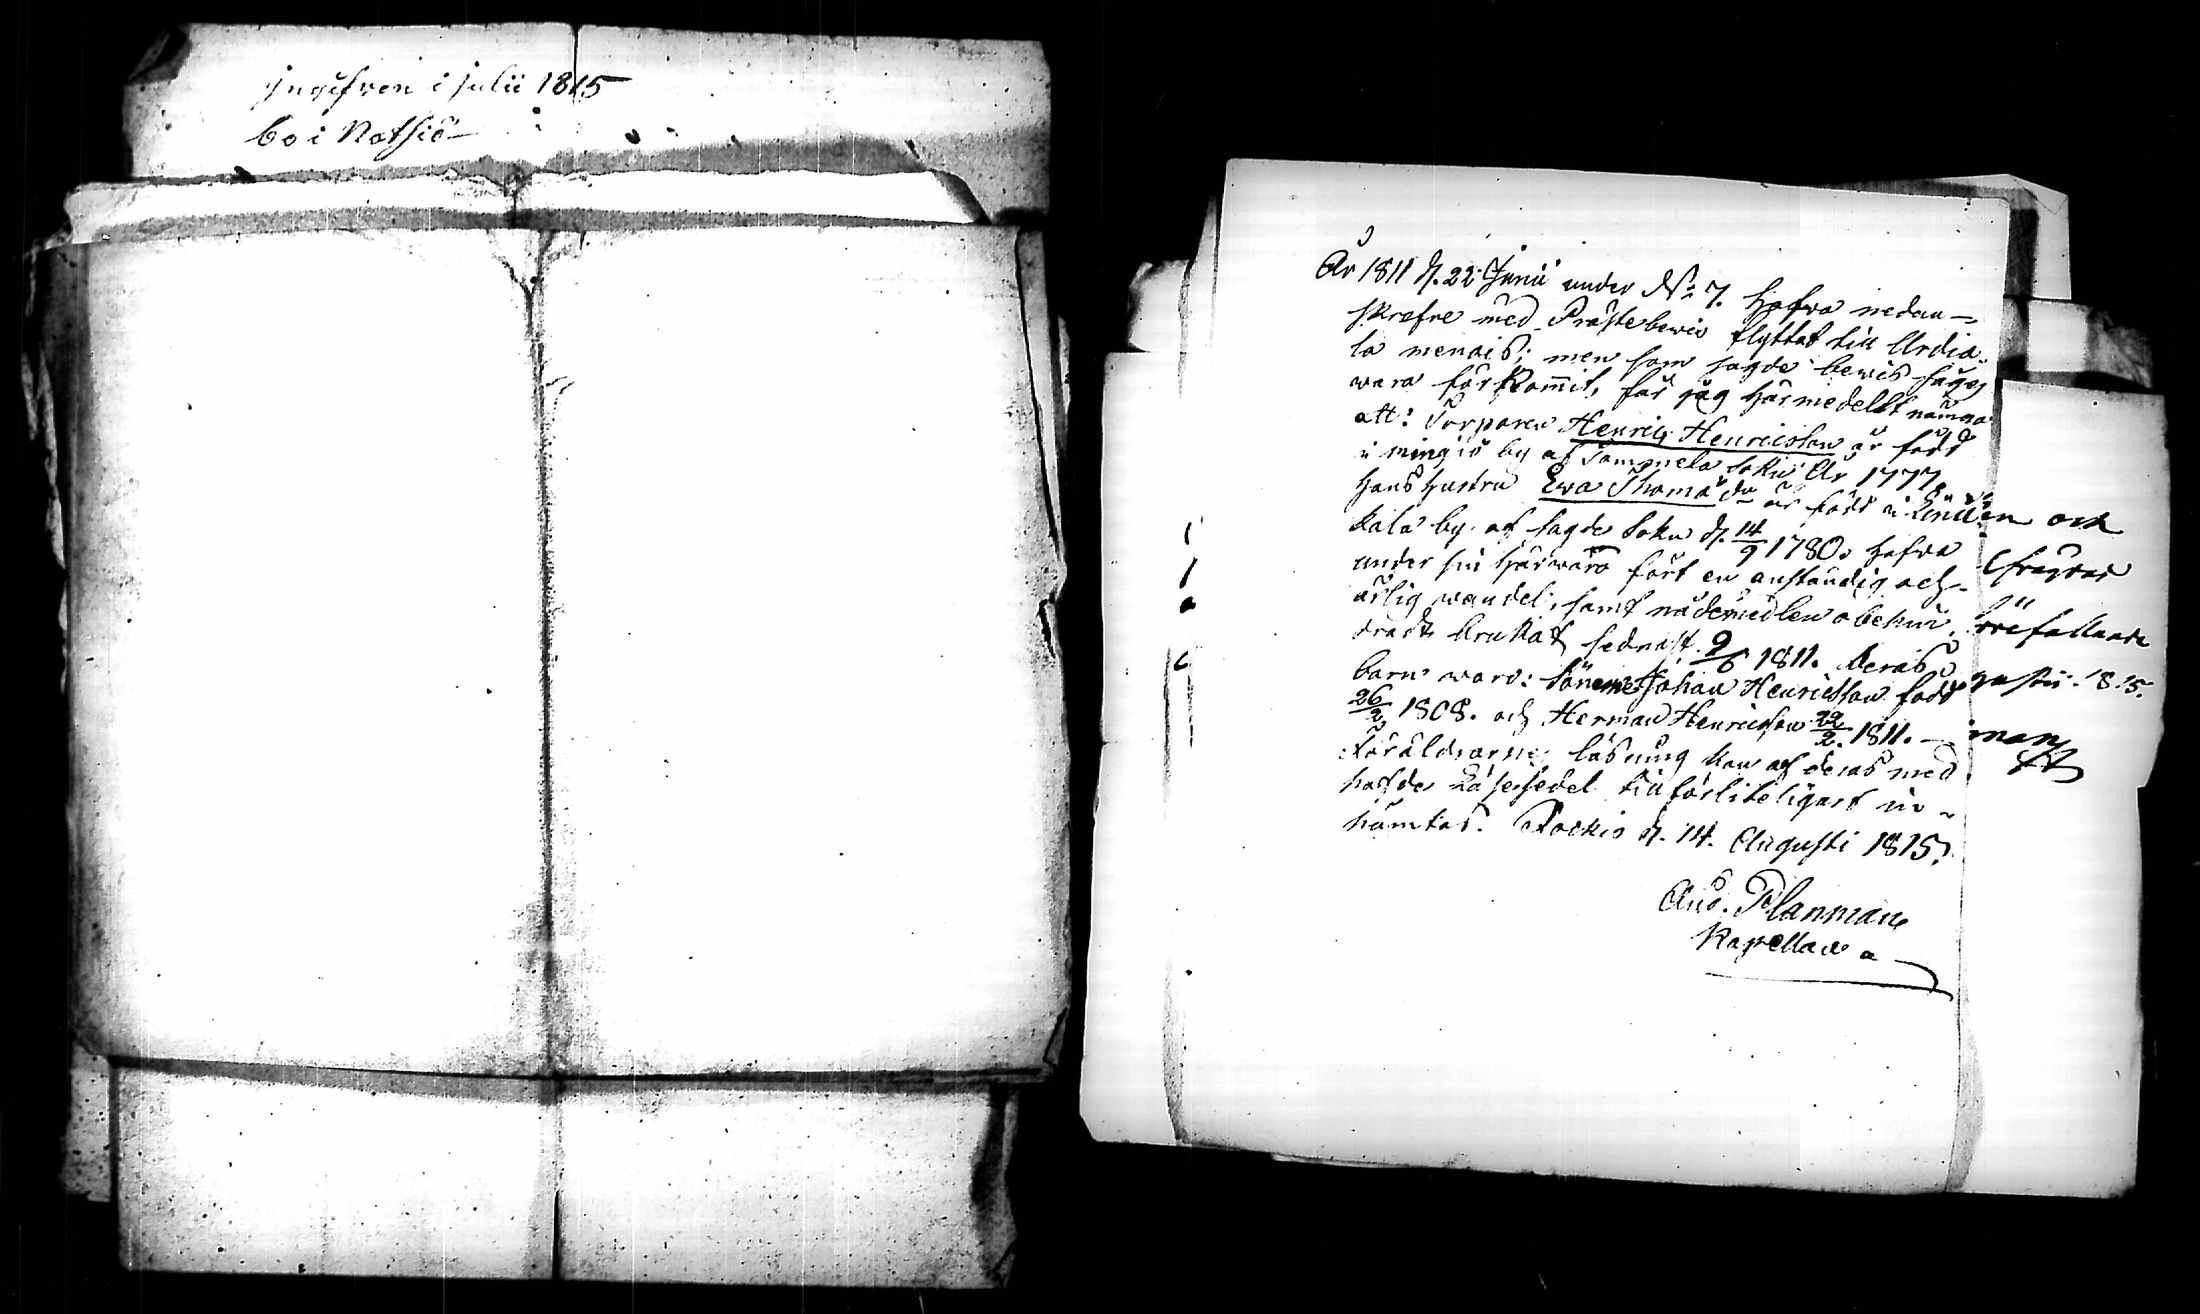 Ingifven i Julii 1815
bo i Notsiö
År 1811 d. 22 Junii under No 7. hafva nedan-
skrefne med Prästebewis flyttat till Urdia-
la menais; men som sagde bewis säges
wara förkommit, får jag härmedelst nämna
att: Torparen Henric Henricsson är född
i mingiö by af Sammela Sokn År 1777.
Hans hustru Ewa Thomædr är född i
kala by af sagde Sokn d. 14/9 1780. hafva
under sin härwaro fört en anständig och
ärlig wandel, samt nådemedlen obehin-
dradt brukat sednast 9/6 1811. Deras
barn woro: Sönerne Johan Henricsson född
26/2 1808. och Herman Henricsson 22/2 1811. —
Föräldrarnes läsning kan af deras med
hafde Läsesedel tillförliteligast in-
hämtas. Kockis d. 14. Augusti 1815.
And. Planman
Kapellan
och
gusti 1815.
man